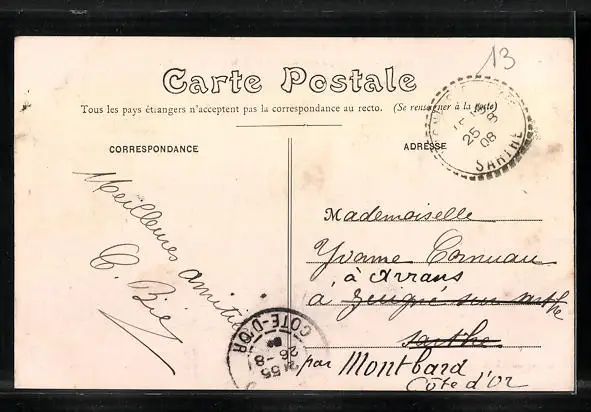 13
Carte Postale
Tous les pays étrangers n'acceptent pas la correspondance au recto. (Se renseigner à la poste)
CORRESPONDANCE
ADRESSE
25 8 08
SARTHE
Meilleures amitiés
C. Bié
Mademoiselle
Yvonne Cornuau
à Arrans
à sur sarthe
sarthe
par Montbard
Côte d'or
COTE-D'OR
26-8